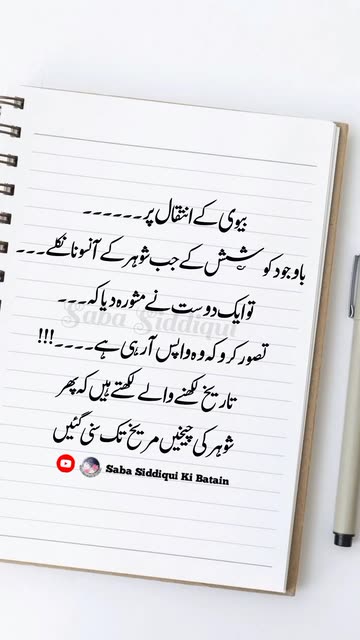 بیوی کے انتقال پر۔۔۔۔۔۔
باوجود کوشش کے جب شوہر کے آنسو نا نکلے۔۔۔
تو ایک دوست نے مشورہ دیا کہ۔۔۔
Saba Siddiqui
تصور کرو کہ وہ واپس آرہی ہے۔۔۔۔!!!
تاریخ لکھنے والے لکھتے ہیں کہ پھر
شوہر کی چیخیں مریخ تک سنی گئیں
Saba Siddiqui Ki Batain